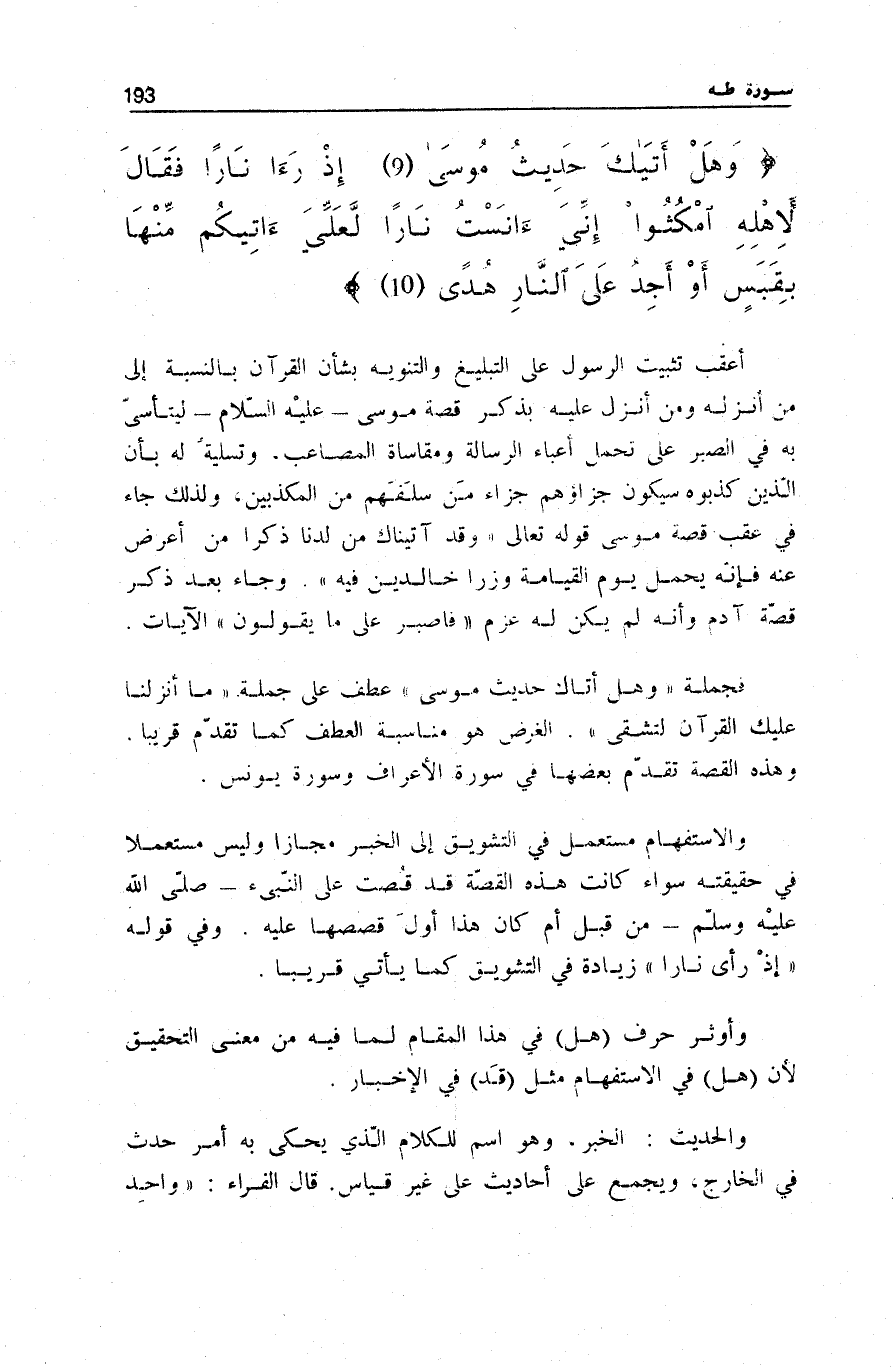 سورة طه
193
﴿ وَهَلْ أَتَيٰكَ حَدِيثُ مُوسَىٰ (9) إِذْ رَءَا نَارًا فَقَالَ
لِأَهْلِهِ ٱمْكُثُواْ إِنِّيَ ءَانَسْتُ نَارًا لَّعَلِّيَ ءَاتِيكُم مِّنْهَا
بِقَبَسٍ أَوْ أَجِدُ عَلَى ٱلنَّارِ هُدًى (10) ﴾
أعقب تثبيت الرسول على التبليغ والتنويه بشأن القرآن بالنسبة إلى
من أنزله ومن أنزل عليه بذكر قصة موسى – عليْه السّلام – ليتأسىّ
به في الصبر على تحمل أعباء الرسالة ومقاساة المصاعب. وتسليةً له بأن
الّذين كذبوه سيكون جزاؤهم جزاء مَن سلَفَهم من المكذبين، ولذلك جاء
في عقب قصة موسى قوله تعالى « وقد آتيناك من لدنا ذكرا من أعرض
عنه فإنّه يحمل يوم القيامة وزرا خالدين فيه » . وجاء بعد ذكر
قصّة آدم وأنه لم يكن له عزم « فاصبر على ما يقولون » الآيات .
فجملة « وهل أتاك حديث موسى » عطف على جملة « ما أنزلنا
عليك القرآن لتشقى » . الغرض هو مناسبة العطف كما تقدّم قريبا .
وهذه القصة تقدّم بعضها في سورة الأعراف وسورة يونس .
والاستفهام مستعمل في التشويق إلى الخبر مجازا وليس مستعملا
في حقيقته سواء كانت هذه القصّة قد قُصت على النّبيء – صلّى الله
عليْه وسلّم – من قبل أم كان هذا أولَ قصصها عليه . وفي قوله
« إذْ رأى نارا » زيادة في التشويق كما يأتي قريبا .
وأوثر حرف (هل) في هذا المقام لما فيه من معنى التحقيق
لأن (هل) في الاستفهام مثل (قَد) في الإخبار .
والحديث : الخبر. وهو اسم للكلام الّذي يحكى به أمر حدث
في الخارج، ويجمع على أحاديث على غير قياس. قال الفراء : « واحد